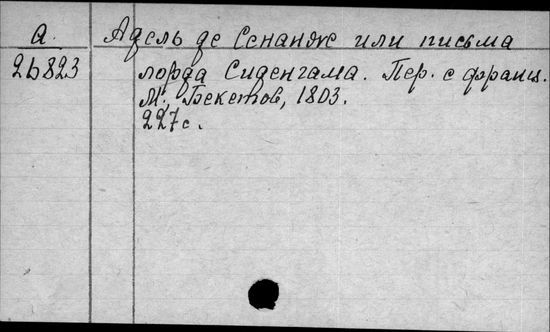 А. Адель де Сенанж или письма
26823 лорда Сиденгама. Пер. с франц.
М., Бекетов, 1803.
227 с.